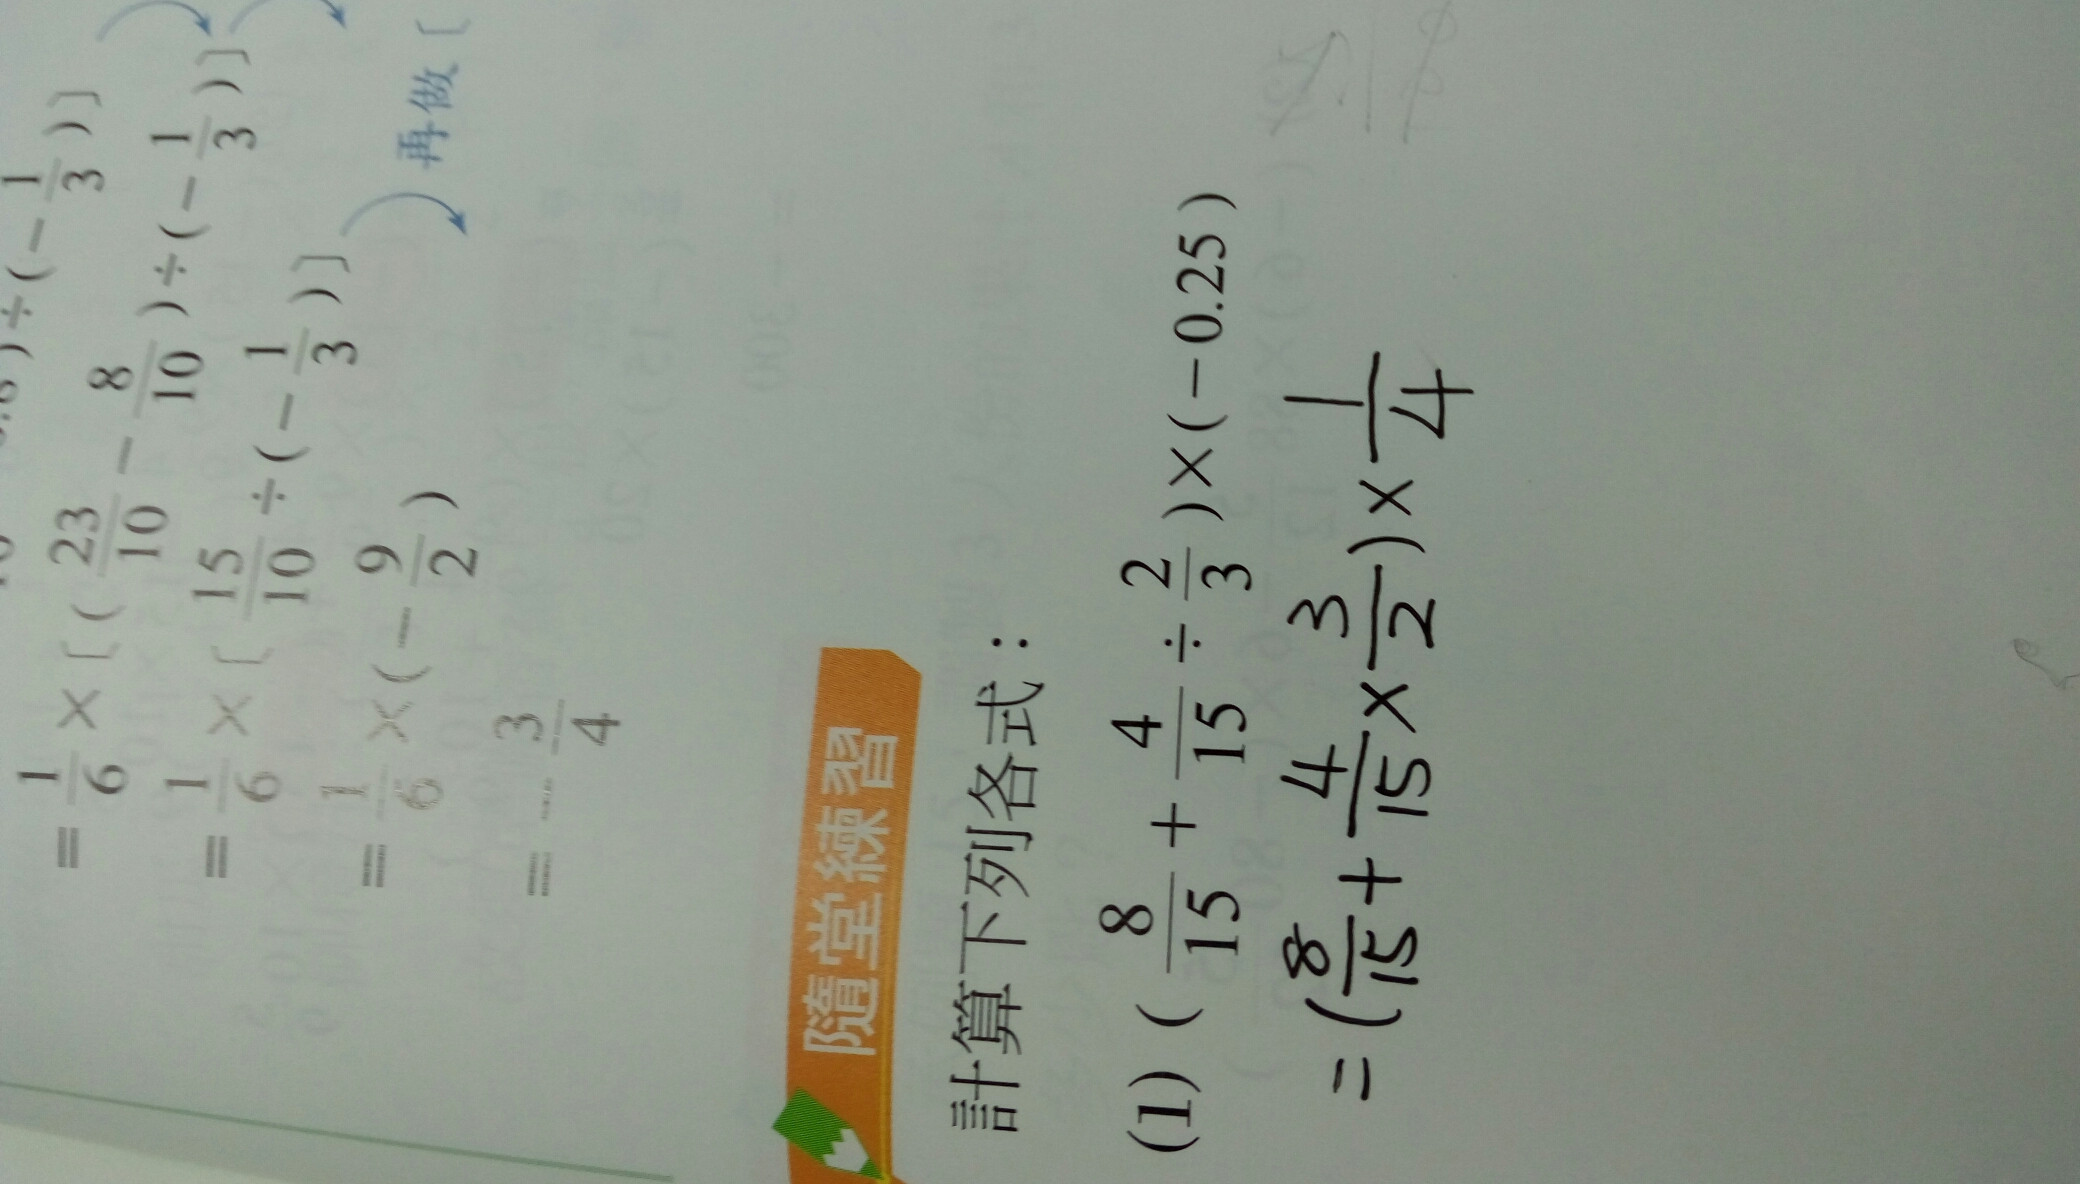 ) ÷ (− 1/3 )〕
= 1/6 × 〔( 23/10 − 8/10 ) ÷ (− 1/3 )〕
= 1/6 × 〔 15/10 ÷ (− 1/3 )〕
再做〔
= 1/6 × (− 9/2 )
= − 3/4
隨堂練習
計算下列各式：
(1) ( 8/15 + 4/15 ÷ 2/3 ) × (−0.25)
= ( 8/15 + 4/15 × 3/2 ) × 1/4